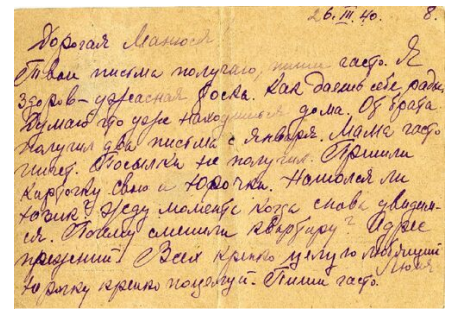 26.III.40. 8.
Дорогая Манюся
Твои письма получаю, пиши часто. Я
здоров – ужасная тоска. Как даешь себе раду.
Думаю что уже находишься дома. От брата
получил два письма с января. Мама часто
пишет. Посылки не получил. Пришли
карточку свою и Юрочки. Нашолся ли
Юзик? Жду момента когда снова увидим-
ся. Почему сменили квартиру? Адрес
прежний. Всех крепко целую любящий
Юрочку крепко поцелуй. Пиши часто.